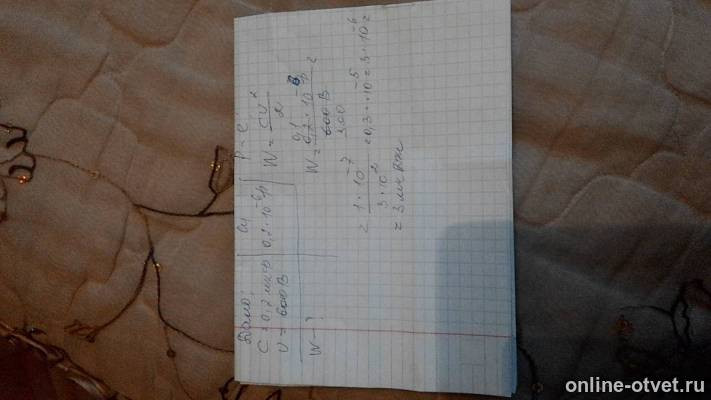 Дано:
C = 0,2 мкФ
U = 600 В
W - ?
Си
0,2 · 10⁻⁶ Ф
Р-е
W = CU² / 2
W =
600 В
300
= 1 · 10⁻⁷ / 3 · 10² = 0,3 · 10⁻⁵ = 3 · 10⁻⁶ =
= 3 мк Дж
online-otvet.ru